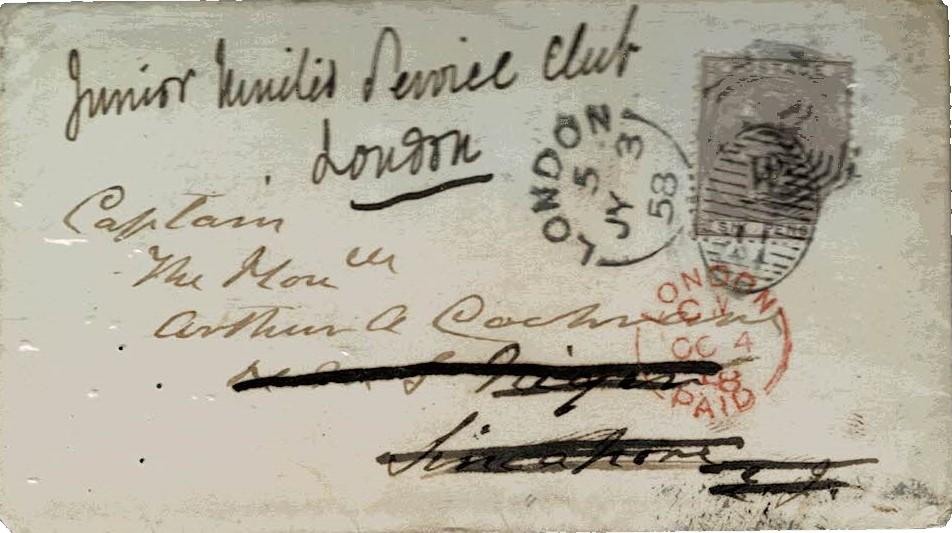 Junior United Service Club
London
Captain
The Hon^ble
Arthur A Cochrane
H.M.S Niger
Singapore
E. I.
LONDON
5 N
JY 3
58
SIX PENCE
LONDON
OC 4
58
PAID